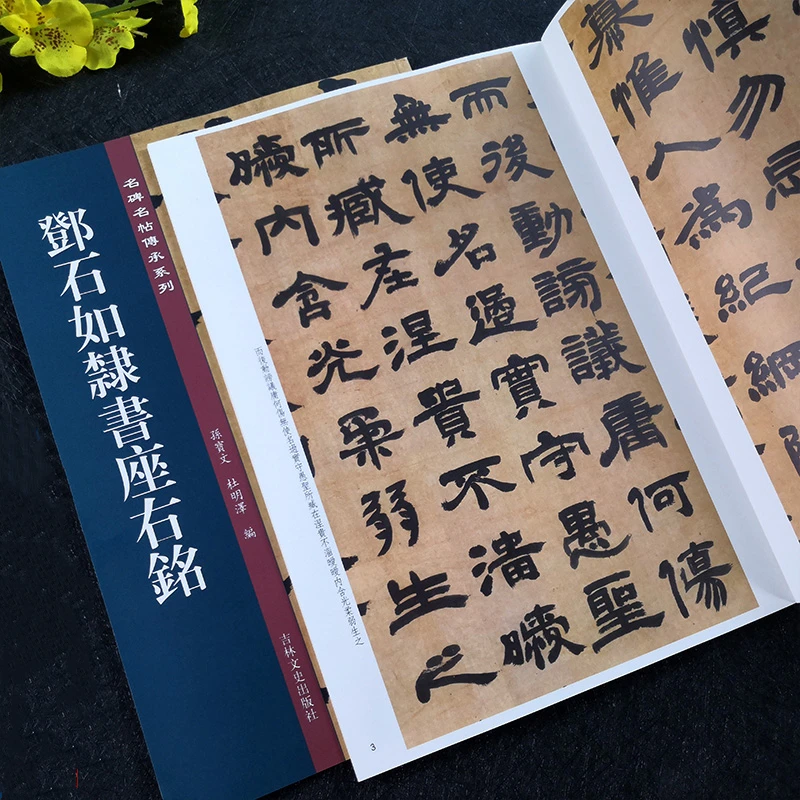 名碑名帖傳承系列
鄧石如隸書座右銘
孫寶文 杜明澤 編
吉林文史出版社
慎勿忘
慕惟人為紀綱
而後動謗議庸何傷
無使名過實守愚聖
所臧在涅貴不淄曖
曖內含光柔弱生之
而後動謗議庸何傷無使名過實守愚聖所臧在涅貴不淄曖曖內含光柔弱生之
3